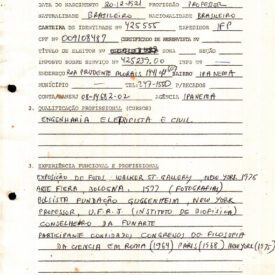 DATA DO NASCIMENTO 20-12-1921 PROFISSÃO PROFESSOR
NATURALIDADE BRASILEIRO NACIONALIDADE BRASILEIRO
CARTEIRA DE IDENTIDADE Nº 425555 EXPEDIDOR IFP
CPF Nº 009108487 CERTIFICADO DE RESERVISTA Nº
TÍTULO DE ELEITOR Nº ZONA SEÇÃO
IMPOSTO SOBRE SERVIÇO Nº 425239.00 INPS Nº
ENDEREÇO RUA PRUDENTE MORAIS BAIRRO IPANEMA
MUNICÍPIO TEL: 247-1580 P/RECADOS
CONTA NUMERO 08-14682-02 AGÊNCIA IPANEMA
2. QUALIFICAÇÃO PROFISSIONAL (CURSOS)
ENGENHARIA ELETRONICA E CIVIL
3. EXPERIÊNCIA FUNCIONAL E PROFISSIONAL
EXPOSIÇÃO DE FOTOS. WALKER ST. GALLERY, NEW YORK 1976
ARTE FIERA, BOLOGNA, 1977 (FOTOGRAFIAS)
BOLSISTA FUNDAÇÃO GUGGENHEIM, NEW YORK
PROFESSOR, U.F.R.J (INSTITUTO DE BIOFISICA)
CONSELHEIRO DA FUNARTE
PARTICIPANTE CONVIDADO, CONGRESSO DE FILOSOFIA
DA CIENCIA EM ROMA (1964) PARIS (1968) NEW YORK (1975)